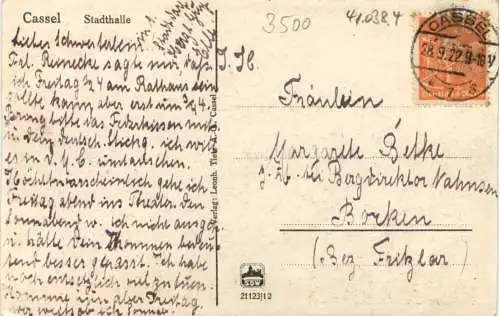 Cassel Stadthalle
3500
41.038.4
CASSEL
28.9.22.9-10V
Liebes Schwesterlein!
Frl. Reinecke sagte mir, daß
ich Freitag 3/4 4 am Rathaus sein
sollte, kann aber erst um 3/4
Bring bitte das Federkissen mit
u. dein deutsch. ich will
es in umtauschen.
Höchstwahrscheinlich gehe ich
Freitag abend ins Theater. Den
Sonnabend w. ich nicht
u. hätte Dein Kommen
besser gepasst. Ich habe
noch entsetzlich viel zu tun.
Komme nun aber Freitag,
wer weiß ob ich Sonnab.
Verlag: Leonh. Tietz A. G. Cassel
Fräulein
Margarete Betke
Bergdirektor
Borken
(Bez. Fritzlar)
21123|12